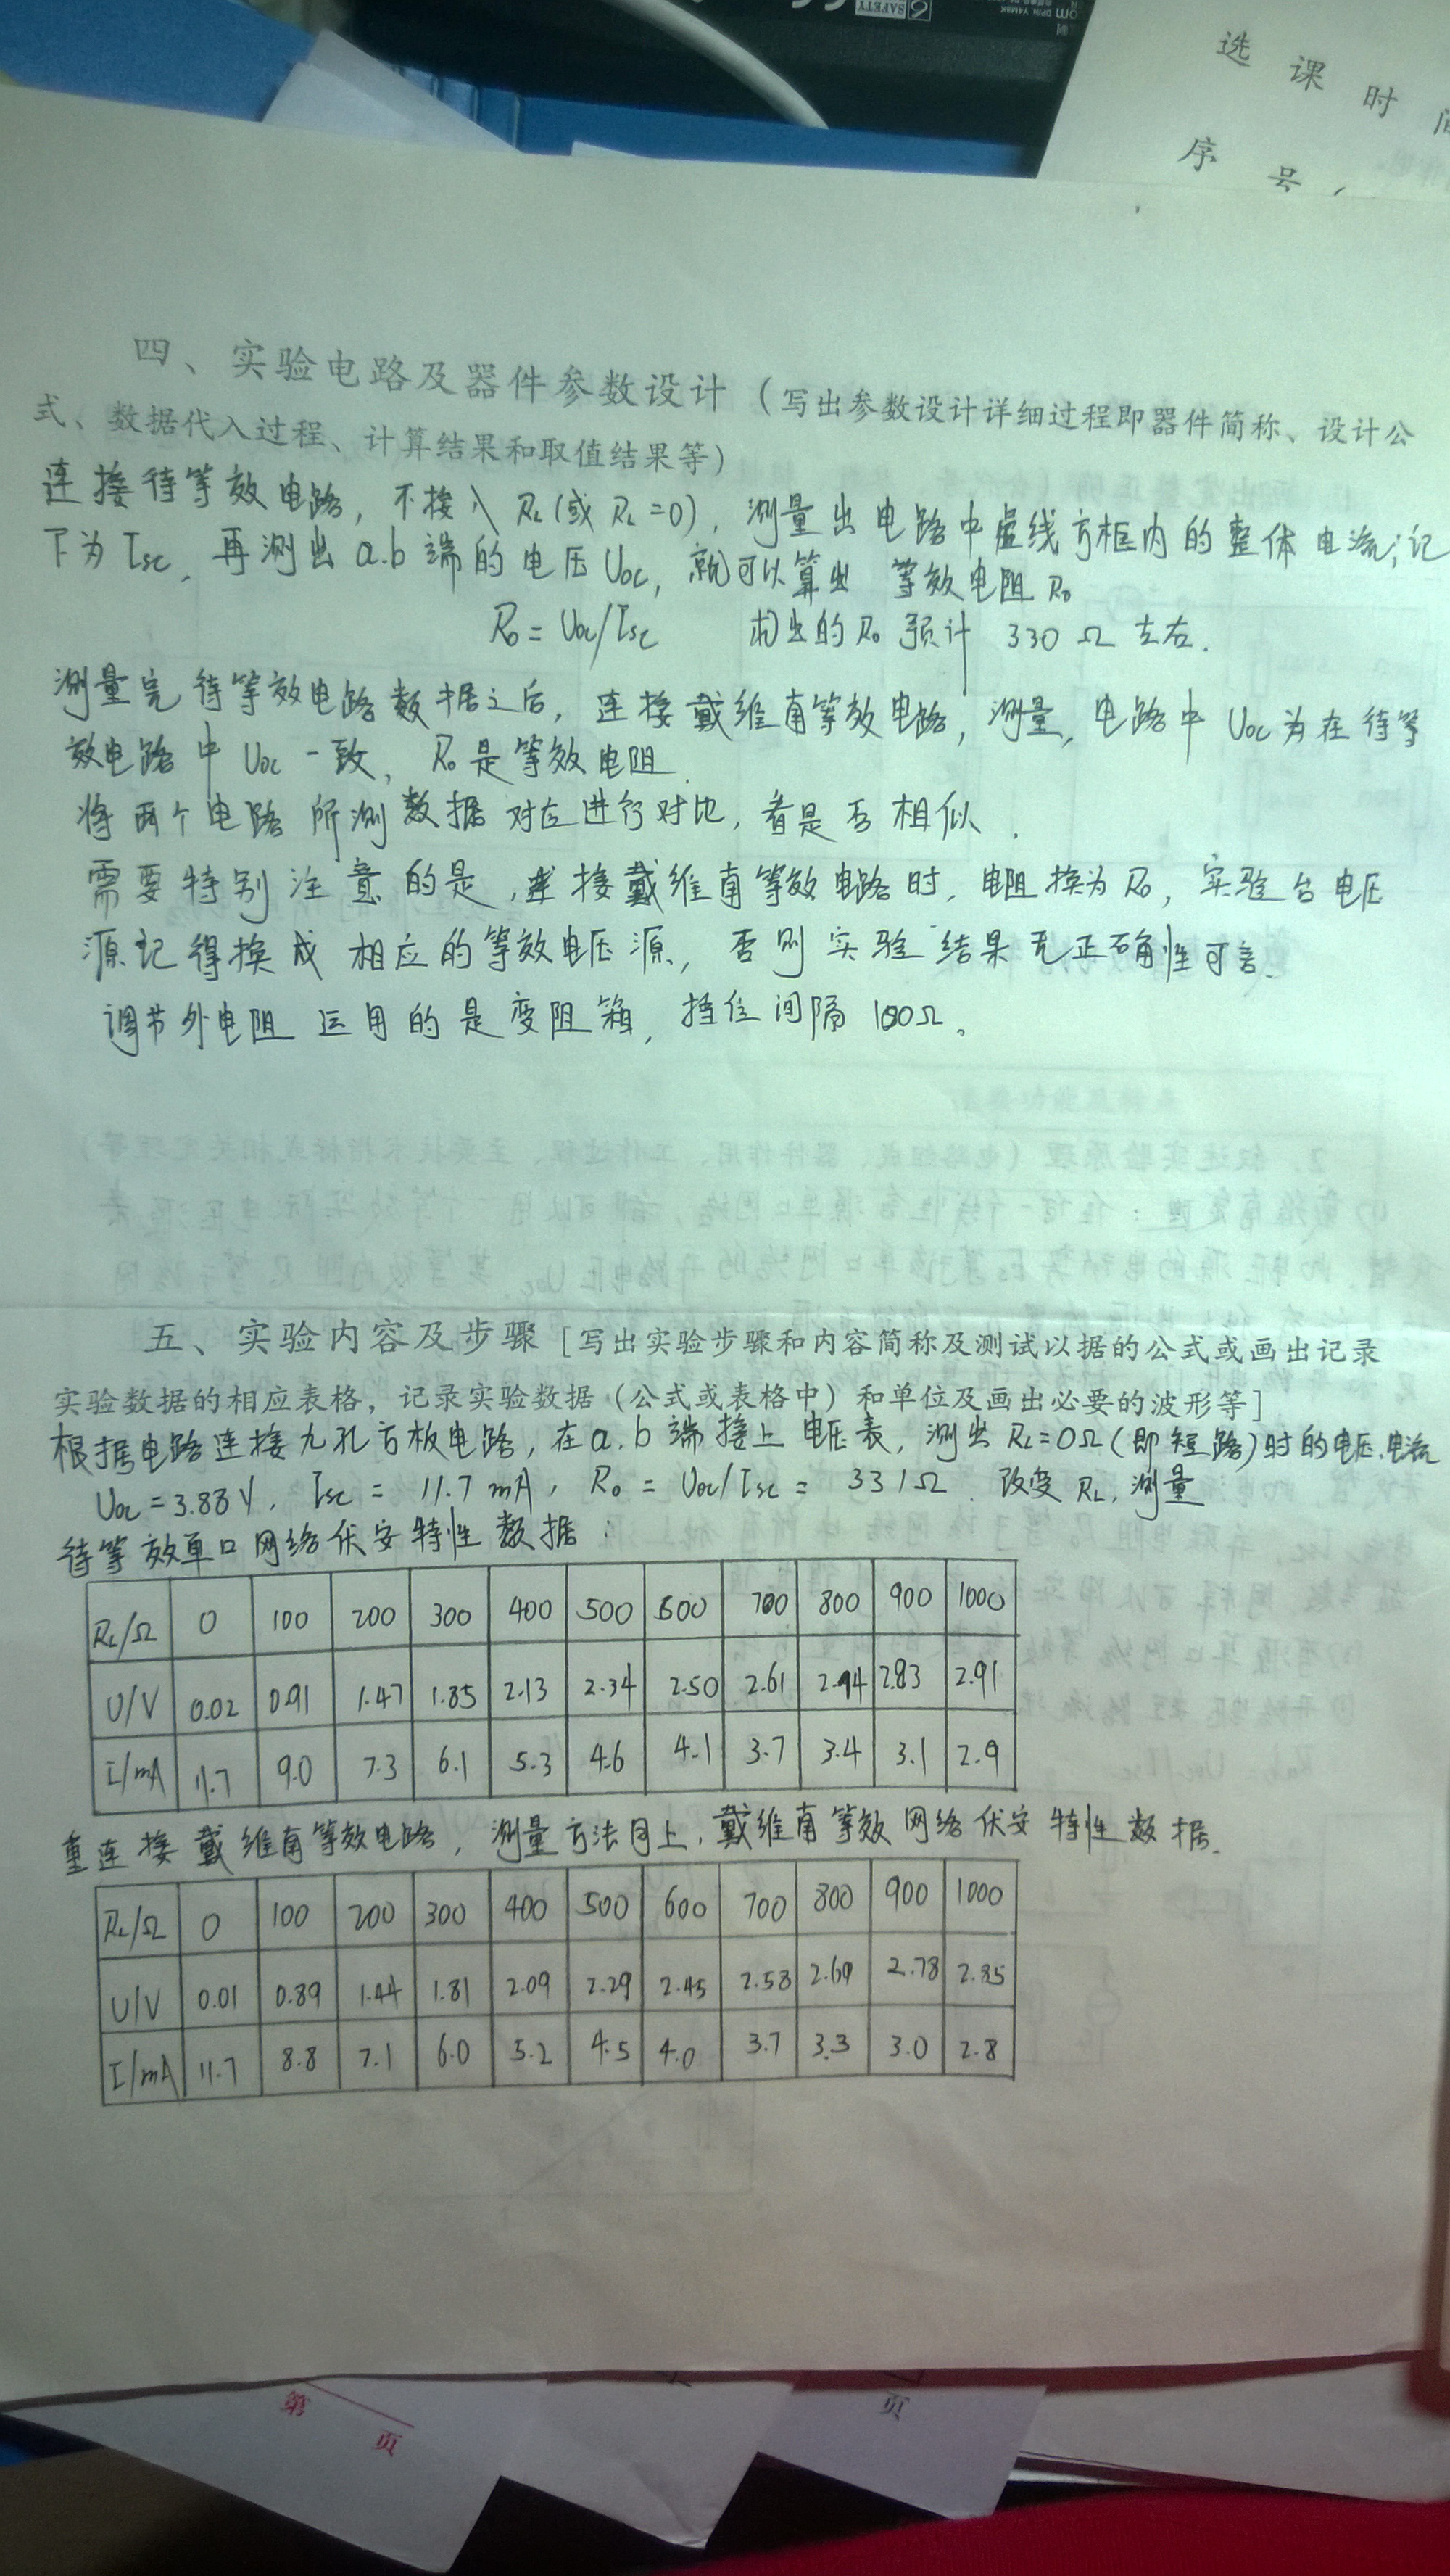 选课时间
序号(
四、实验电路及器件参数设计（写出参数设计详细过程即器件简称、设计公
式、数据代入过程、计算结果和取值结果等）
连接待等效电路，不接入 RL(或 RL=0)，测量出电路中虚线方框内的整体电流；记
下为 Isc，再测出 a.b 端的电压 Uoc，就可以算出 等效电阻 R0
R0 = Uoc/Isc 求出的 R0 预计 330 Ω 左右.
测量完待等效电路数据之后，连接戴维南等效电路，测量，电路中 Uoc 为在待等
效电路中 Uoc 一致，R0 是等效电阻.
将两个电路所测数据对应进行对比，看是否相似.
需要特别注意的是，连接戴维南等效电路时，电阻换为 R0，实验台电压
源记得换成 相应的等效电压源，否则实验结果无正确性可言.
调节外电阻 运用的是变阻箱，挡位间隔 100Ω。
五、实验内容及步骤［写出实验步骤和内容简称及测试以据的公式或画出记录
实验数据的相应表格，记录实验数据（公式或表格中）和单位及画出必要的波形等］
根据电路连接九孔方板电路，在 a.b 端接上电压表，测出 RL=0Ω(即短路)时的电压.电流
Uoc = 3.88V, Isc = 11.7 mA, R0 = Uoc/Isc = 331Ω. 改变 RL, 测量
待等效单口网络伏安特性数据：
RL/Ω 0 100 200 300 400 500 600 700 800 900 1000
U/V 0.02 0.91 1.47 1.85 2.13 2.34 2.50 2.61 2.94 2.83 2.91
I/mA 11.7 9.0 7.3 6.1 5.3 4.6 4.1 3.7 3.4 3.1 2.9
重连接戴维南等效电路，测量方法同上，戴维南等效网络伏安特性数据.
RL/Ω 0 100 200 300 400 500 600 700 800 900 1000
U/V 0.01 0.89 1.44 1.81 2.09 2.29 2.45 2.58 2.69 2.78 2.85
I/mA 11.7 8.8 7.1 6.0 5.2 4.5 4.0 3.7 3.3 3.0 2.8
第 页
页